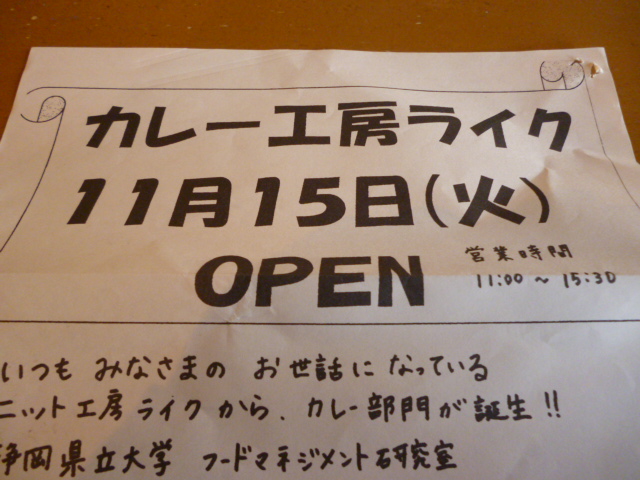 カレー工房ライク
11月15日(火)
OPEN
営業時間
11:00 ~ 15:30
いつも みなさまの お世話に なっている
ニット工房ライクから、カレー部門が誕生!!
静岡県立大学 フードマネジメント研究室